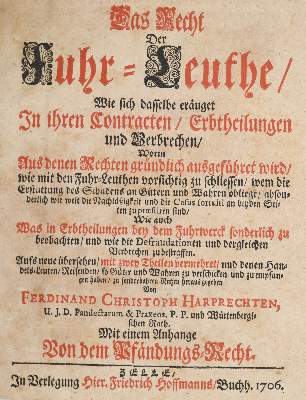 Das Recht
Der
Fuhr-Leuthe/
Wie sich dasselbe eräuget
In ihren Contracten/ Erbtheilungen
und Verbrechen/
Worin
Aus denen Rechten gründlich ausgeführet wird/
wie mit den Fuhr-Leuthen vorsichtig zu schliessen/ wem die
Erstattung des Schadens an Gütern und Wahren obliege/ abson-
derlich wie weit die Nachläßigkeit und die Casus fortuiti an beyden Sei-
ten zu præstiren sind/
Wie auch
Was in Erbtheilungen bey dem Fuhrwerck sonderlich zu
beobachten/ und wie die Defraudationen und dergleichen
Verbrechen zu bestraffen.
Aufs neue übersehen/ mit zwey Theilen vermehret/ und denen Han-
dels-Leuten/ Reisenden/ so Güter und Wahren zu verschicken und zu empfan-
gen haben/ zu sonderbahren Nutzen heraus gegeben
Von
FERDINAND CHRISTOPH HARPRECHTEN,
U. J. D. Pandectarum & Praxeos, P. P. und Würtenbergi-
schen Rath.
Mit einem Anhange
Von dem Pfändungs-Recht.
ZELLE/
In Verlegung Hier. Friedrich Hoffmanns/ Buchh. 1706.